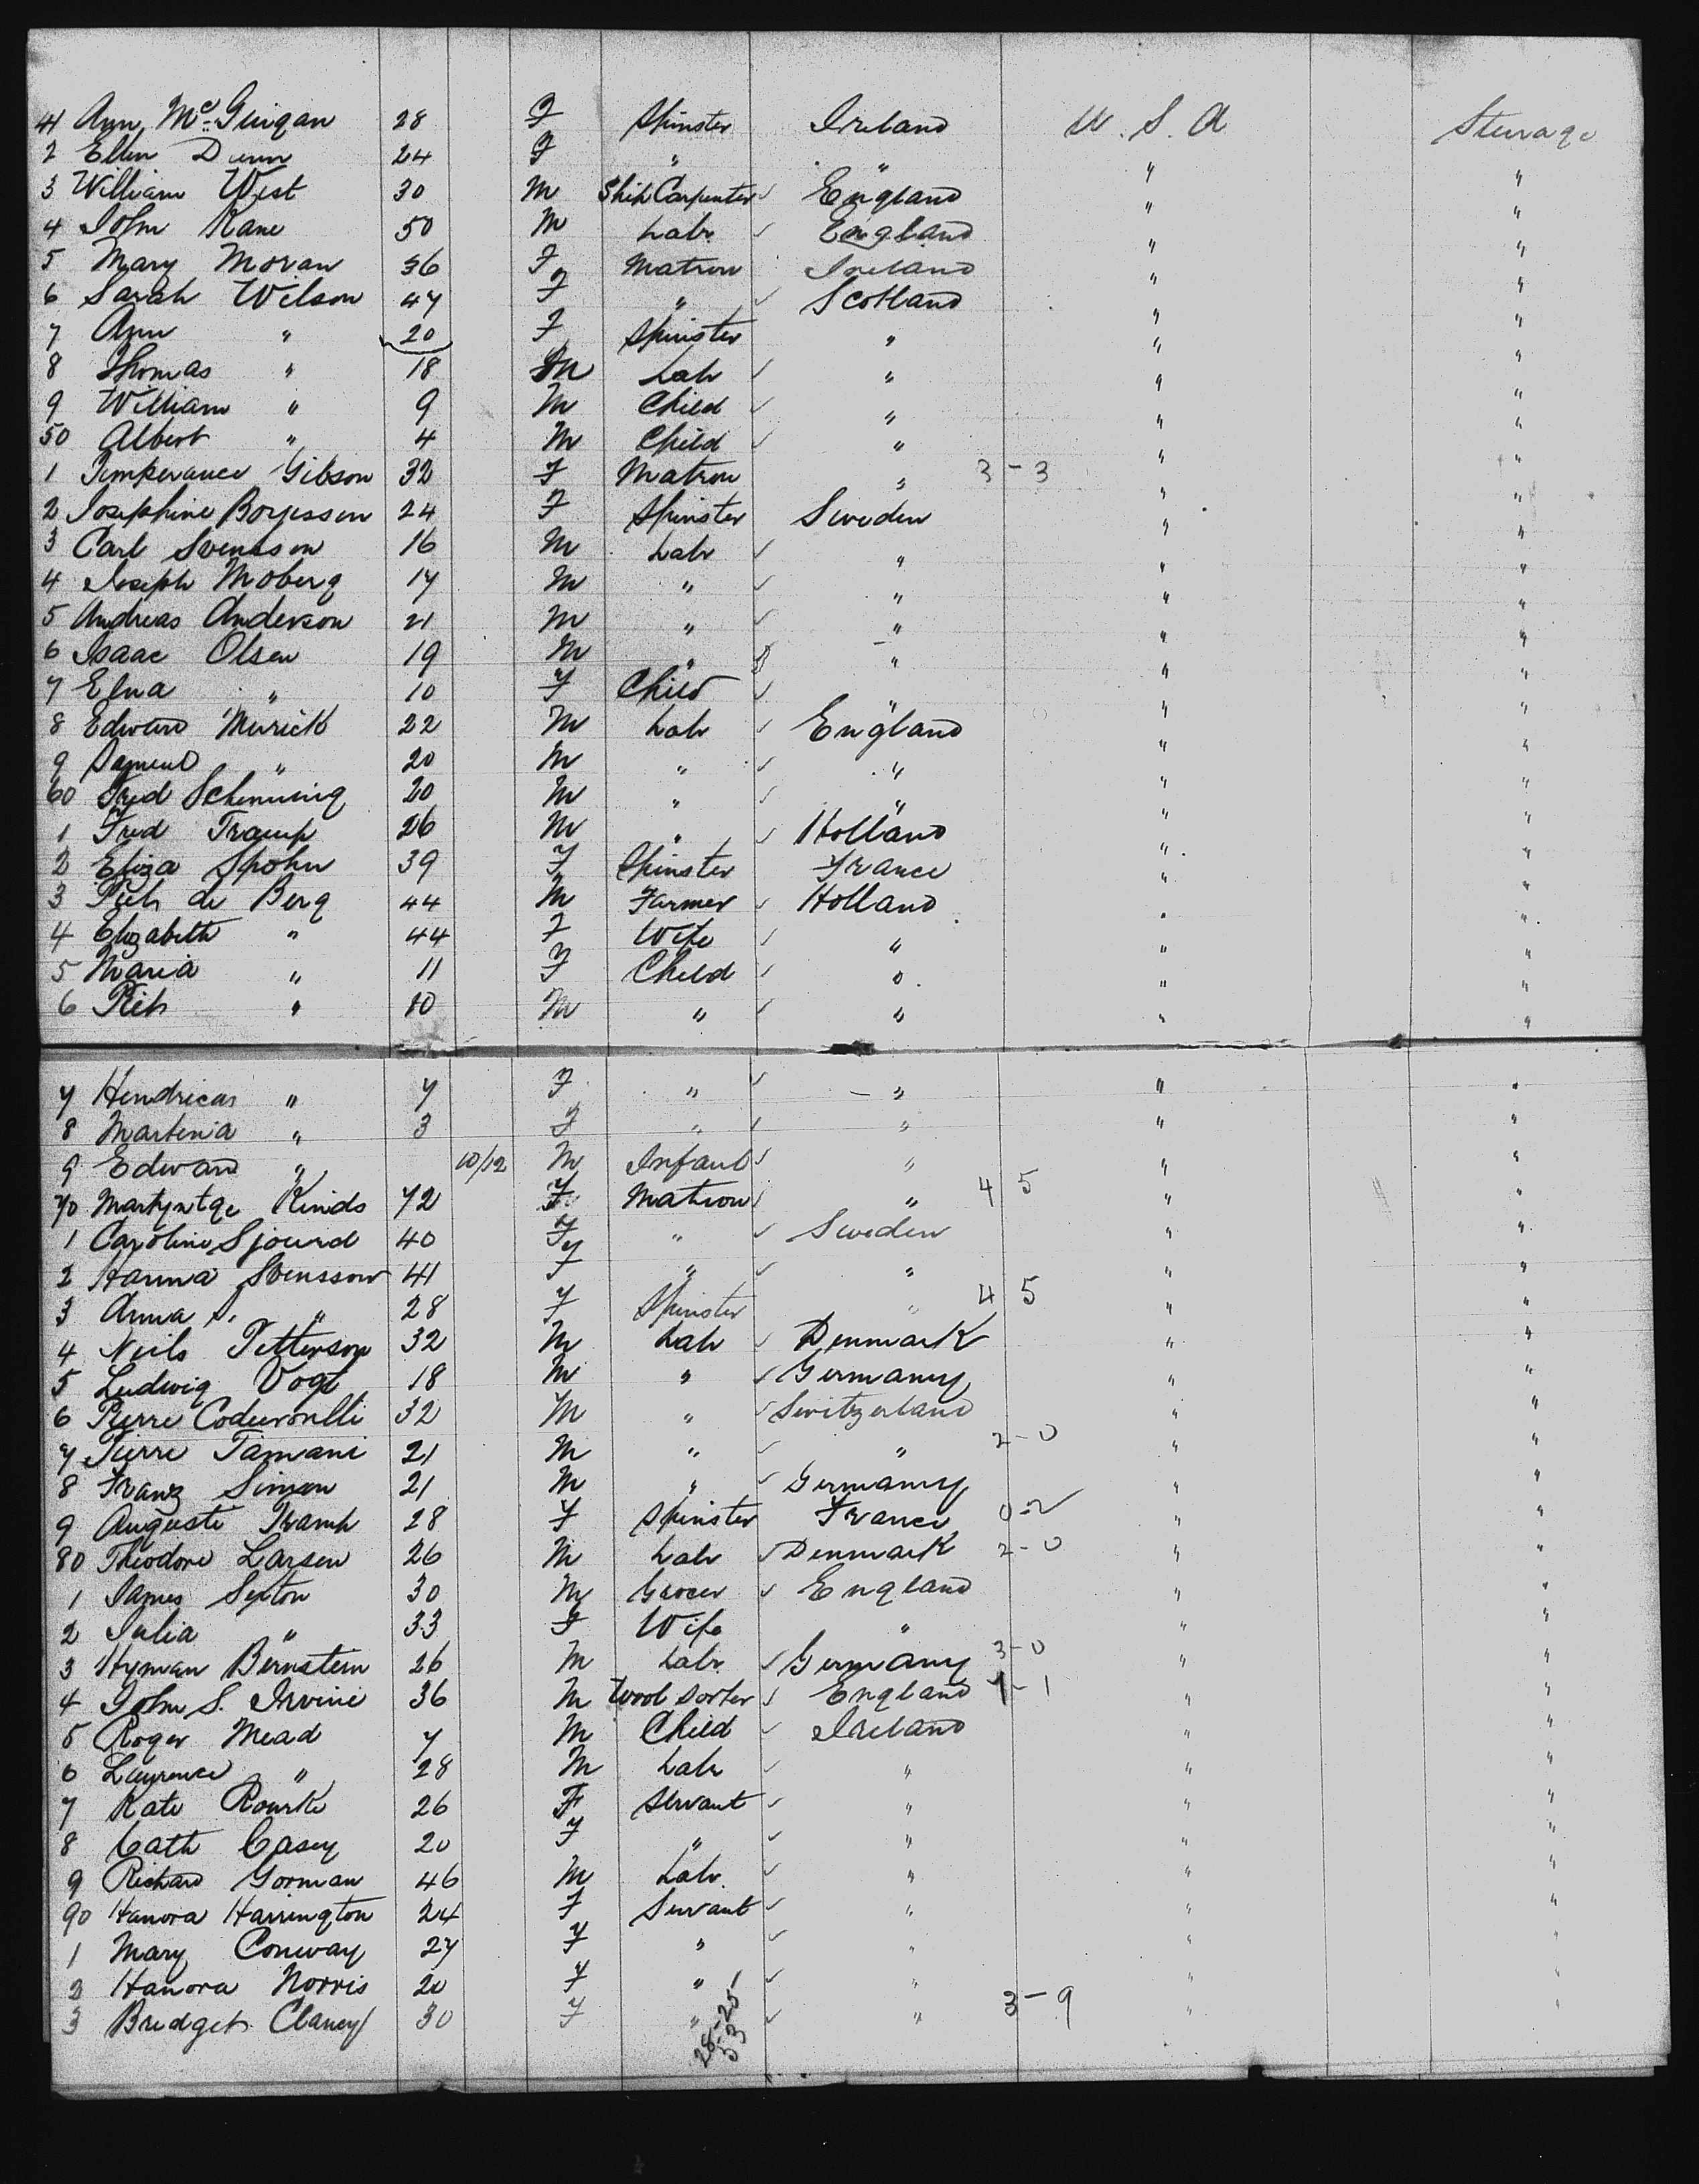 41 Ann McGuigan 28 F Spinster Ireland U. S. A Steerage
2 Ellen Dunn 24 F " " " "
3 William West 30 M Ship Carpenter ✓ England " "
4 John Kane 50 M Labr ✓ England " "
5 Mary Moran 36 F Matron Ireland " "
6 Sarah Wilson 47 F " ✓ Scotland " "
7 Ann " 20 F Spinster " " "
8 Thomas " 18 M Labr ✓ " " "
9 William " 9 M Child ✓ " " "
50 Albert " 4 M Child ✓ " " "
1 Temperance Gibson 32 F Matron " 3-3 " "
2 Josephine Borjesson 24 F Spinster Sweden " "
3 Carl Svensson 16 M Labr ✓ " " "
4 Joseph Moberg 17 M " ✓ " " "
5 Andreas Anderson 21 M " ✓ " " "
6 Isaac Olsen 19 M " " " "
7 Elna " 10 F Child ✓ " " "
8 Edward Murick 22 M Labr ✓ England " "
9 Samuel " 20 M " ✓ " " "
60 Fred 20 M " ✓ " " "
1 Fred Tramp 26 M " ✓ Holland " "
2 Eliza Spohn 39 F Spinster France " "
3 de Berg 44 M Farmer ✓ Holland " "
4 Elizabeth " 44 F Wife ✓ " " "
5 Maria " 11 F Child ✓ " " "
6 " 10 M " ✓ " " "
7 Hendricas " 7 F " ✓ " " "
8 Martenia " 3 F " ✓ " " "
9 Edward " 10/12 M Infant ✓ " " "
70 Martyntge Kinds 72 F Matron ✓ " 4 5 " "
1 Caroline Sjourd 40 F " ✓ Sweden " "
2 Hanna Svensson 41 F " ✓ " " "
3 Anna S. " 28 F Spinster " 4 5 " "
4 Neils Petterson 32 M Labr ✓ Denmark " "
5 Ludwig Vogt 18 M " ✓ Germany " "
6 Pierre 32 M " ✓ Switzerland " "
7 Pierre Tamani 21 M " ✓ " 2-0 " "
8 Franz Simon 21 M " ✓ Germany " "
9 Auguste Tramp 28 F Spinster France 0-2 " "
80 Theodore Larsen 26 M Labr ✓ Denmark 2-0 " "
1 James Sexton 30 M Grocer ✓ England " "
2 Julia " 33 F Wife " " "
3 Hyman Bernstein 26 M Labr ✓ Germany 3-0 " "
4 John S. Irvine 36 M Wool Sorter ✓ England 1-1 " "
5 Roger Mead 7 M Child ✓ Ireland " "
6 Laurence " 28 M Labr ✓ " " "
7 Kate Rourke 26 F Servant ✓ " " "
8 Cath Casey 20 F " ✓ " " "
9 Richard Gorman 46 M Labr ✓ " " "
90 Hanora Harrington 24 F Servant ✓ " " "
1 Mary Conway 27 F " ✓ " " "
2 Hanora Norris 20 F " ✓ " " "
3 Bridget Clancy 30 F " ✓ " 3-9 " "
28-25
53